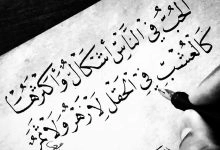 الحُبُّ فِي النَّاسِ أَشْكَالٌ وَأَكْثَرُهَا
كَالْعُشْبِ فِي الْحَقْلِ لَا زَهْرٌ وَلَا ثَمَرُ